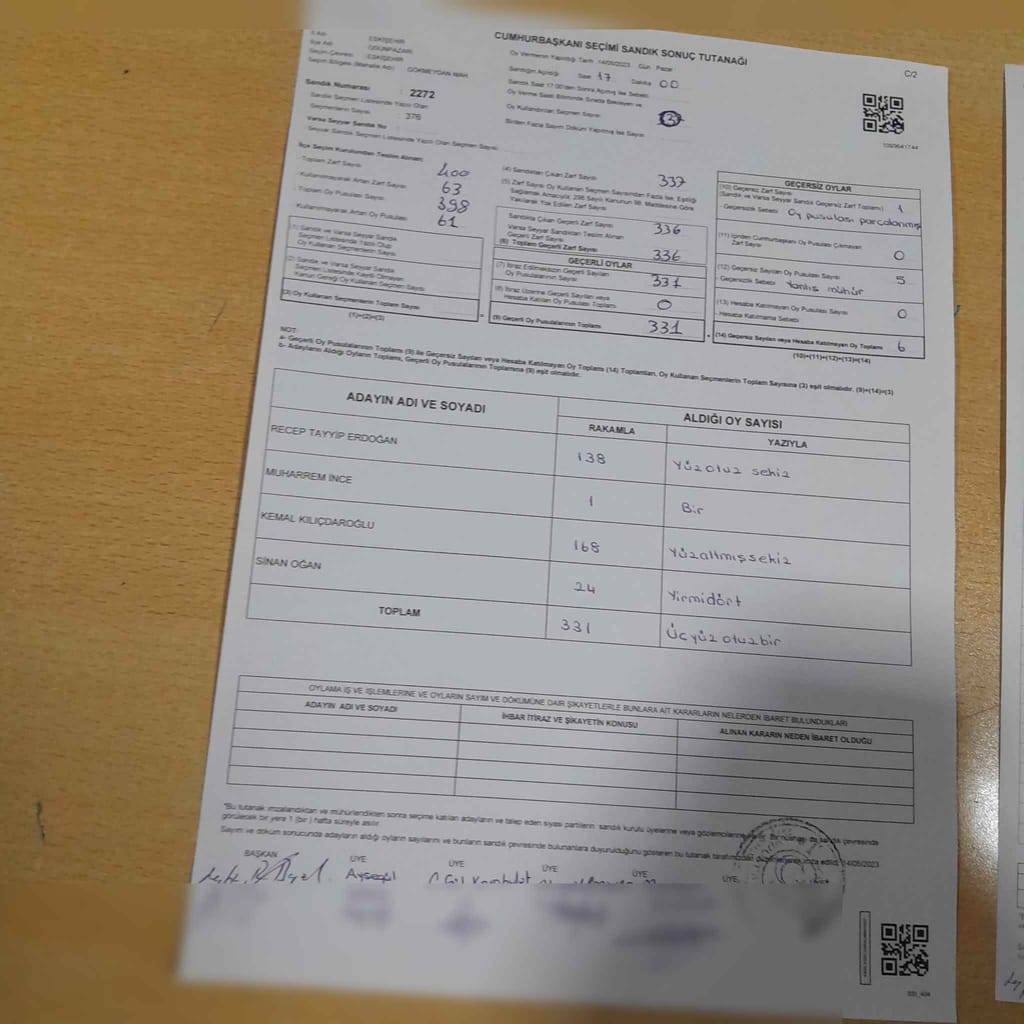 CUMHURBAŞKANI SEÇİMİ SANDIK SONUÇ TUTANAĞI
C/2
İl Adı ESKİŞEHİR
İlçe Adı ODUNPAZARI
Seçim Çevresi ESKİŞEHİR
Seçim Bölgesi (Mahalle Adı) GÖKMEYDAN MAH.
Sandık Numarası : 2272
Sandık Seçmen Listesinde Yazılı Olan
Seçmenlerin Sayısı : 376
Varsa Seyyar Sandık No
Seyyar Sandık Seçmen Listesinde Yazılı Olan Seçmen Sayısı
Oy Vermenin Yapıldığı Tarih 14/05/2023 Gün Pazar
Sandığın Açıldığı Saat 17 Dakika 00
Sandık Saat 17.00'den Sonra Açılmış İse Sebebi
Oy Verme Saati Bitiminde Sırada Bekleyen ve
Oy Kullandırılan Seçmen Sayısı
Birden Fazla Sayım Döküm Yapılmış İse Sayısı
İlçe Seçim Kurulundan Teslim Alınan:
- Toplam Zarf Sayısı 400
- Kullanılmayarak Artan Zarf Sayısı 63
- Toplam Oy Pusulası Sayısı 398
Kullanılmayarak Artan Oy Pusulası 61
(1) Sandık ve Varsa Seyyar Sandık
Seçmen Listesinde Yazılı Olup
Oy Kullanan Seçmenlerin Sayısı
(2) Sandık ve Varsa Seyyar Sandık
Seçmen Listesinde Kayıtlı Olmayan
Kanun Gereği Oy Kullanan Seçmen Sayısı
(3) Oy Kullanan Seçmenlerin Toplam Sayısı
(1)+(2)=(3)
(4) Sandıktan Çıkan Zarf Sayısı 337
(5) Zarf Sayısı Oy Kullanan Seçmen Sayısından Fazla İse, Eşitliği
Sağlamak Amacıyla; 298 Sayılı Kanunun 98. Maddesine Göre
Yakılarak Yok Edilen Zarf Sayısı
Sandıkta Çıkan Geçerli Zarf Sayısı 336
Varsa Seyyar Sandıktan Teslim Alınan
Geçerli Zarf Sayısı
(6) Toplam Geçerli Zarf Sayısı 336
GEÇERLİ OYLAR
(7) İtiraz Edilmeksizin Geçerli Sayılan
Oy Pusulalarının Sayısı 331
(8) İtiraz Üzerine Geçerli Sayılan veya
Hesaba Katılan Oy Pusulası Toplamı 0
(9) Geçerli Oy Pusulalarının Toplamı 331
GEÇERSİZ OYLAR
(10) Geçersiz Zarf Sayısı
(Sandık ve Varsa Seyyar Sandık Geçersiz Zarf Toplamı) 1
- Geçersizlik Sebebi Oy pusulası parçalanmış
(11) İçinden Cumhurbaşkanı Oy Pusulası Çıkmayan
Zarf Sayısı 0
(12) Geçersiz Sayılan Oy Pusulası Sayısı 5
- Geçersizlik Sebebi Yanlış mühür
(13) Hesaba Katılmayan Oy Pusulası Sayısı 0
- Hesaba Katılmama Sebebi
(14) Geçersiz Sayılan veya Hesaba Katılmayan Oy Toplamı 6
(10)+(11)+(12)+(13)=(14)
NOT:
a- Geçerli Oy Pusulalarının Toplamı (9) ile Geçersiz Sayılan veya Hesaba Katılmayan Oy Toplamı (14) Toplamları, Oy Kullanan Seçmenlerin Toplam Sayısına (3) eşit olmalıdır. (9)+(14)=(3)
b- Adayların Aldığı Oyların Toplamı, Geçerli Oy Pusulalarının Toplamına (9) eşit olmalıdır.
ADAYIN ADI VE SOYADI
ALDIĞI OY SAYISI
RAKAMLA YAZIYLA
RECEP TAYYİP ERDOĞAN 138 Yüzotuz sekiz
MUHARREM İNCE 1 Bir
KEMAL KILIÇDAROĞLU 168 Yüzaltmışsekiz
SİNAN OĞAN 24 Yirmidört
TOPLAM 331 Üçyüzotuzbir
OYLAMA İŞ VE İŞLEMLERİNE VE OYLARIN SAYIM VE DÖKÜMÜNE DAİR ŞİKAYETLERLE BUNLARA AİT KARARLARIN NELERDEN İBARET BULUNDUKLARI
ADAYIN ADI VE SOYADI İHBAR İTİRAZ VE ŞİKAYETİN KONUSU ALINAN KARARIN NEDEN İBARET OLDUĞU
"Bu tutanak imzalandıktan ve mühürlendikten sonra seçime katılan adayların ve talep eden siyasi partilerin sandık kurulu üyelerine veya gözlemcilerine
görülecek bir yere 1 (bir) hafta süreyle asılır.
Sayım ve döküm sonucunda adayların aldığı oyların sayılarını ve bunların sandık çevresinde bulunanlara duyurulduğunu gösteren bu tutanak tarafımızdan düzenlenerek imza edildi. 14/05/2023
BAŞKAN ÜYE ÜYE ÜYE ÜYE
Ayşegül